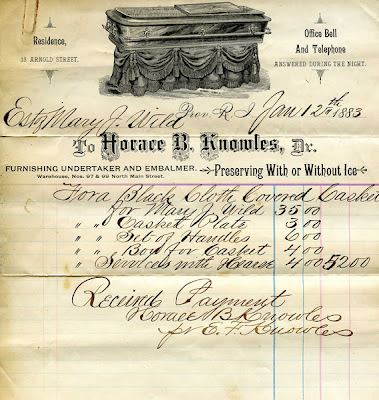 Residence,
13 ARNOLD STREET.
Office Bell
And Telephone
ANSWERED DURING THE NIGHT.
Prov. R. I. Jan 12th 1883
Est Mary J. Wild
To Horace B. Knowles, Dr.
FURNISHING UNDERTAKER AND EMBALMER. Preserving With or Without Ice
Warehouse, Nos. 97 & 99 North Main Street.
For a Black Cloth Covered Casket
for Mary J Wild 35 00
" " Casket Plate 3 00
" " Set of Handles 6 00
" " Box for Casket 4 00
" Services with Hearse 4 00 52 00
Received Payment
Horace B Knowles
pr E. F. Knowles